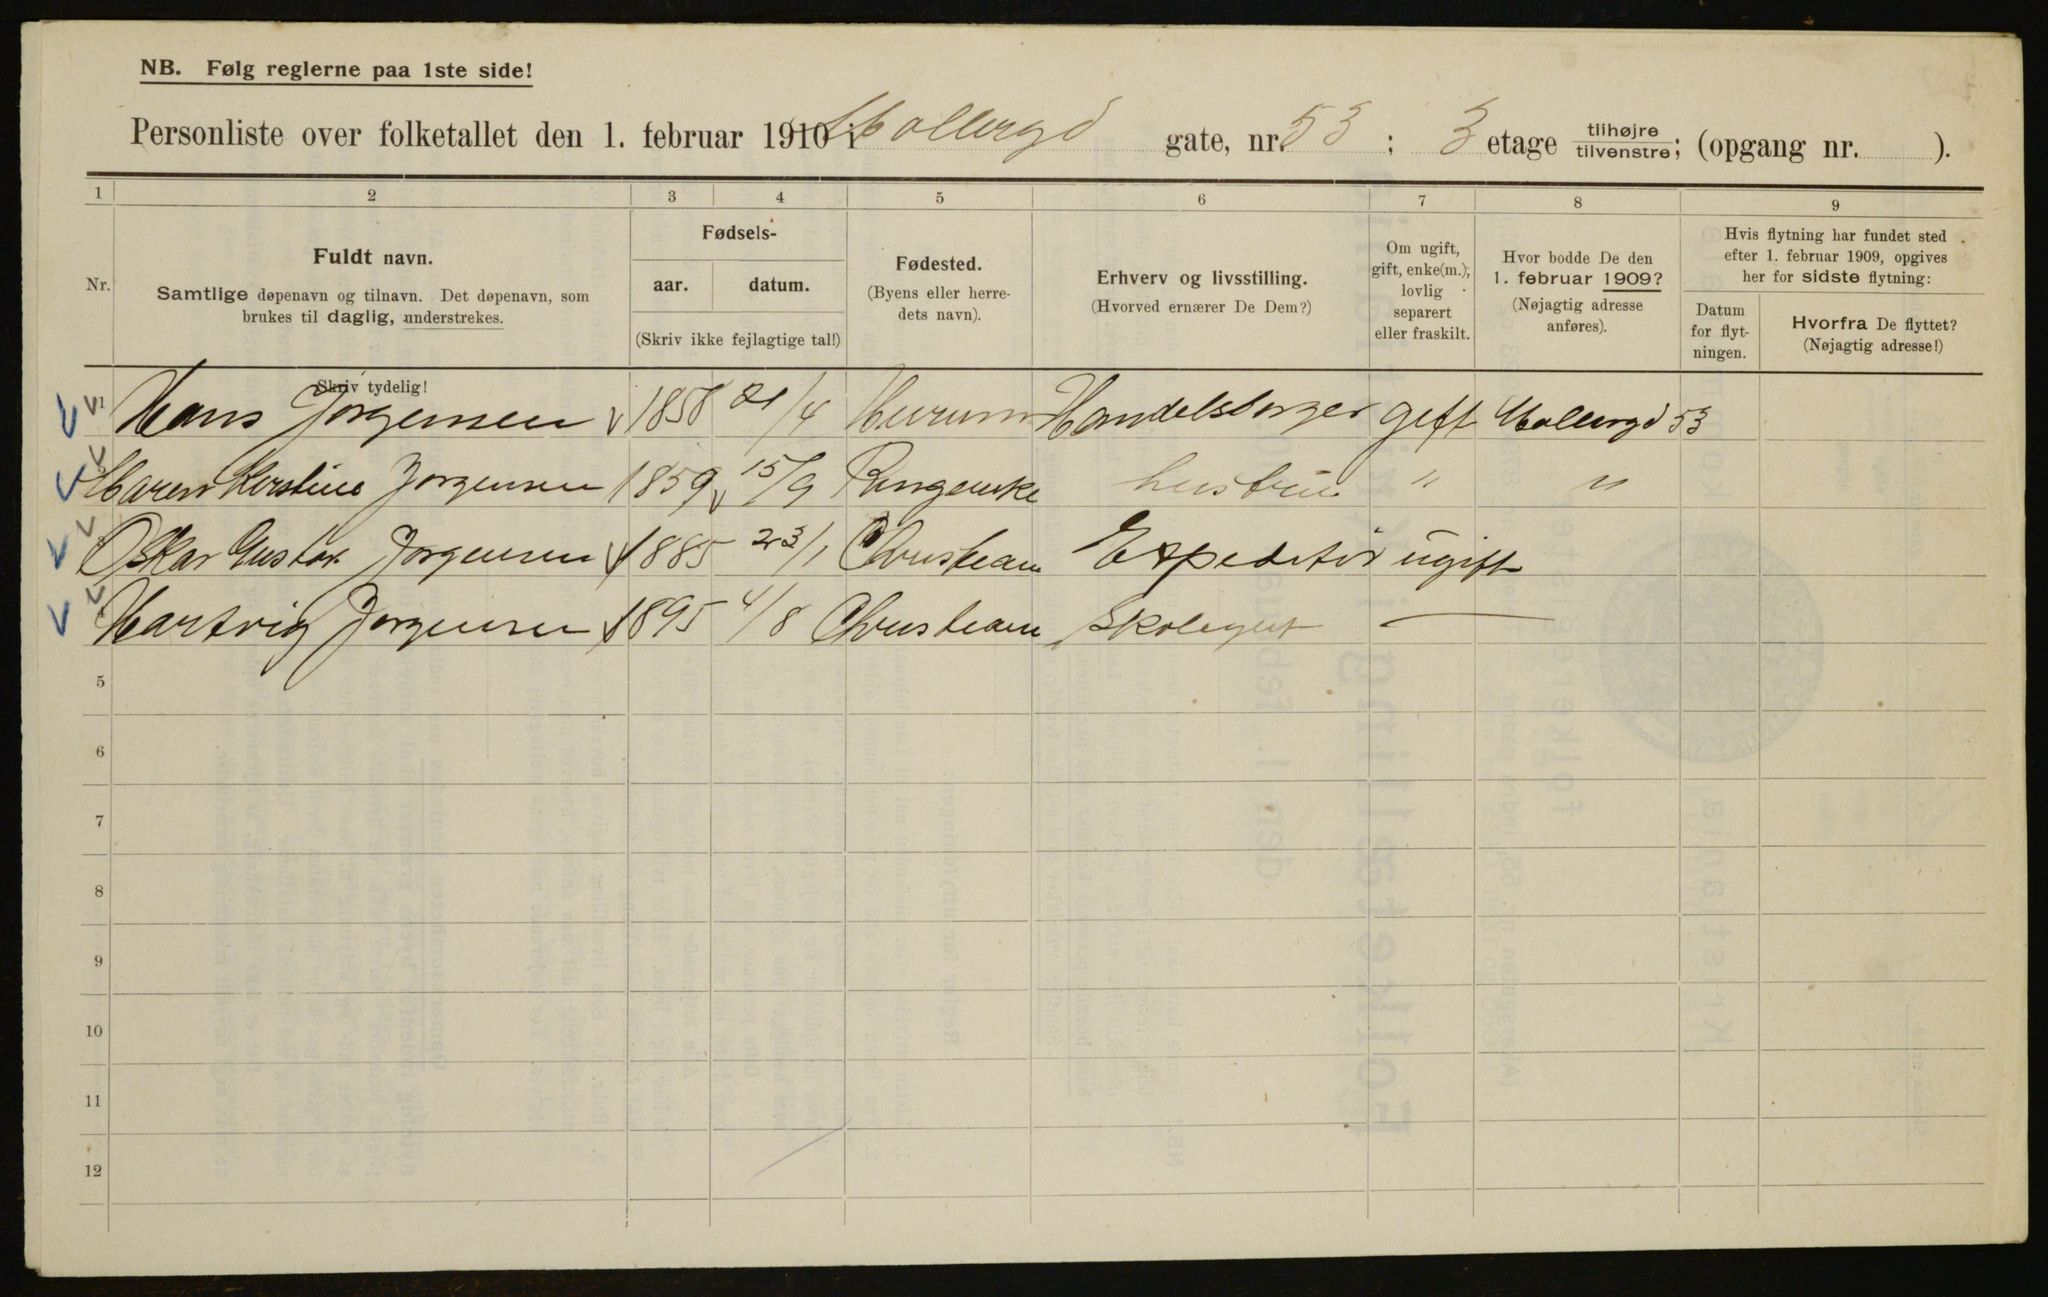 NB. Følg reglerne paa 1ste side!
Personliste over folketallet den 1. februar 1910 i Mollergd gate, nr. 53 ; 3 etage tilhøjre tilvenstre; (opgang nr. ).
1 2 3 4 5 6 7 8 9
Nr.
Fuldt navn.
Samtlige døpenavn og tilnavn. Det døpenavn, som
brukes til daglig, understrekes.
Skriv tydelig!
Fødsels-
aar. datum.
(Skriv ikke fejlagtige tal!)
Fødested.
(Byens eller herre-
dets navn).
Erhverv og livsstilling.
(Hvorved ernærer De Dem?)
Om ugift,
gift, enke(m.),
lovlig
separert
eller fraskilt.
Hvor bodde De den
1. februar 1909?
(Nøjagtig adresse
anføres).
Hvis flytning har fundet sted
efter 1. februar 1909, opgives
her for sidste flytning:
Datum
for flyt-
ningen.
Hvorfra De flyttet?
(Nøjagtig adresse!)
1 Hans Jorgensen 1858 21/4 Hurum Handelsborger gift Mollergd 53
Maren Kirstine Jorgensen 1859 15/9 Ringerike hustru " "
Oskar Gustav Jorgensen 1885 23/1 Christiania Expeditør ugift
Hartvig Jorgensen 1895 4/8 Christiania Skolegut —
5
6
7
8
9
10
11
12